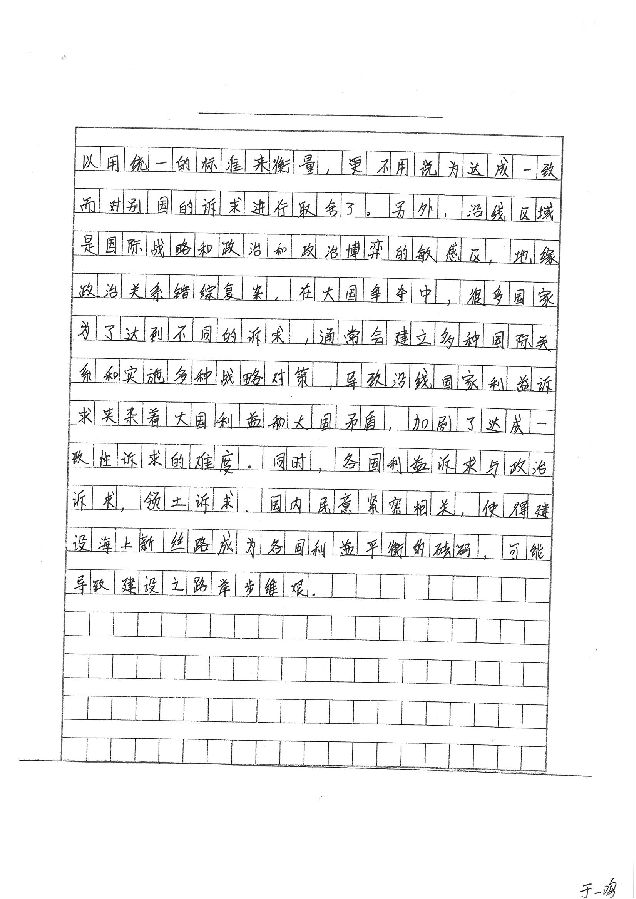 以用统一的标准来衡量，更不用说为达成一致
而对别国的诉求进行取舍了。另外，沿线区域
是国际战略和政治和政治博弈的敏感区，地缘
政治关系错综复杂，在大国争夺中，很多国家
为了达到不同的诉求，通常会建立多种国际关
系和实施多种战略对策，导致沿线国家利益诉
求夹杂着大国利益和大国矛盾，加剧了达成一
致性诉求的难度。同时，各国利益诉求与政治
诉求，领土诉求、国内民意紧密相关，使得建
设海上新丝路成为各国利益平衡的砝码，可能
导致建设之路举步维艰．
于一